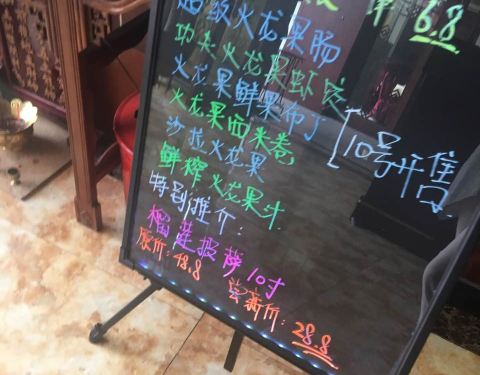 6.8
超级火龙果肠
功夫火龙果虾饺
火龙果鲜果布丁
火龙果西米卷
[10号开售]
沙拉火龙果
鲜榨火龙果汁
特别推介:
榴莲披萨10寸
原价:48.8 尝新价:28.8